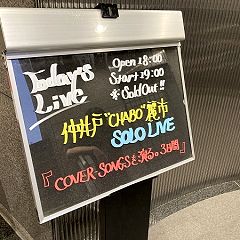 Today's Live
Open 18:00
Start 19:00
※Sold Out!!
仲井戸"CHABO"麗市
SOLO LIVE
『COVER-SONGSを演る。3日間』